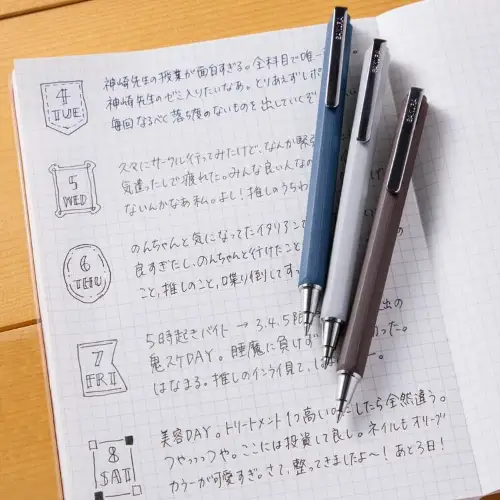 4
TUE
神崎先生の授業が面白すぎる。全科目で唯一
神崎先生のゼミ入りたいなあ。とりあえずレポ
毎回なるべく落ち度のないものを出していくぞ
5
WED
久々にサークル行ってみたけど、なんか緊
気遣ったしで疲れた。みんな良い人なの
ないんかなあ私。よし！推しのうちわ
6
THU
のんちゃんと気になってたイタリアンで
良すぎたし、のんちゃんと行けたこと
こと、推しのこと、喋り倒してすっ
7
FRI
5時起きバイト → 3.4.5限 出の
鬼スケDAY。睡魔に負けず った。
はなまる。推しのインライ見て、
8
SAT
美容DAY。トリートメント1つ高いのにしたら全然違う。
つやっっつや。ここには投資して良し。ネイルもオリーブ
カラーが可愛すぎ。さて、整ってきましたよ〜！あと3日！
SAKURA
SAKURA